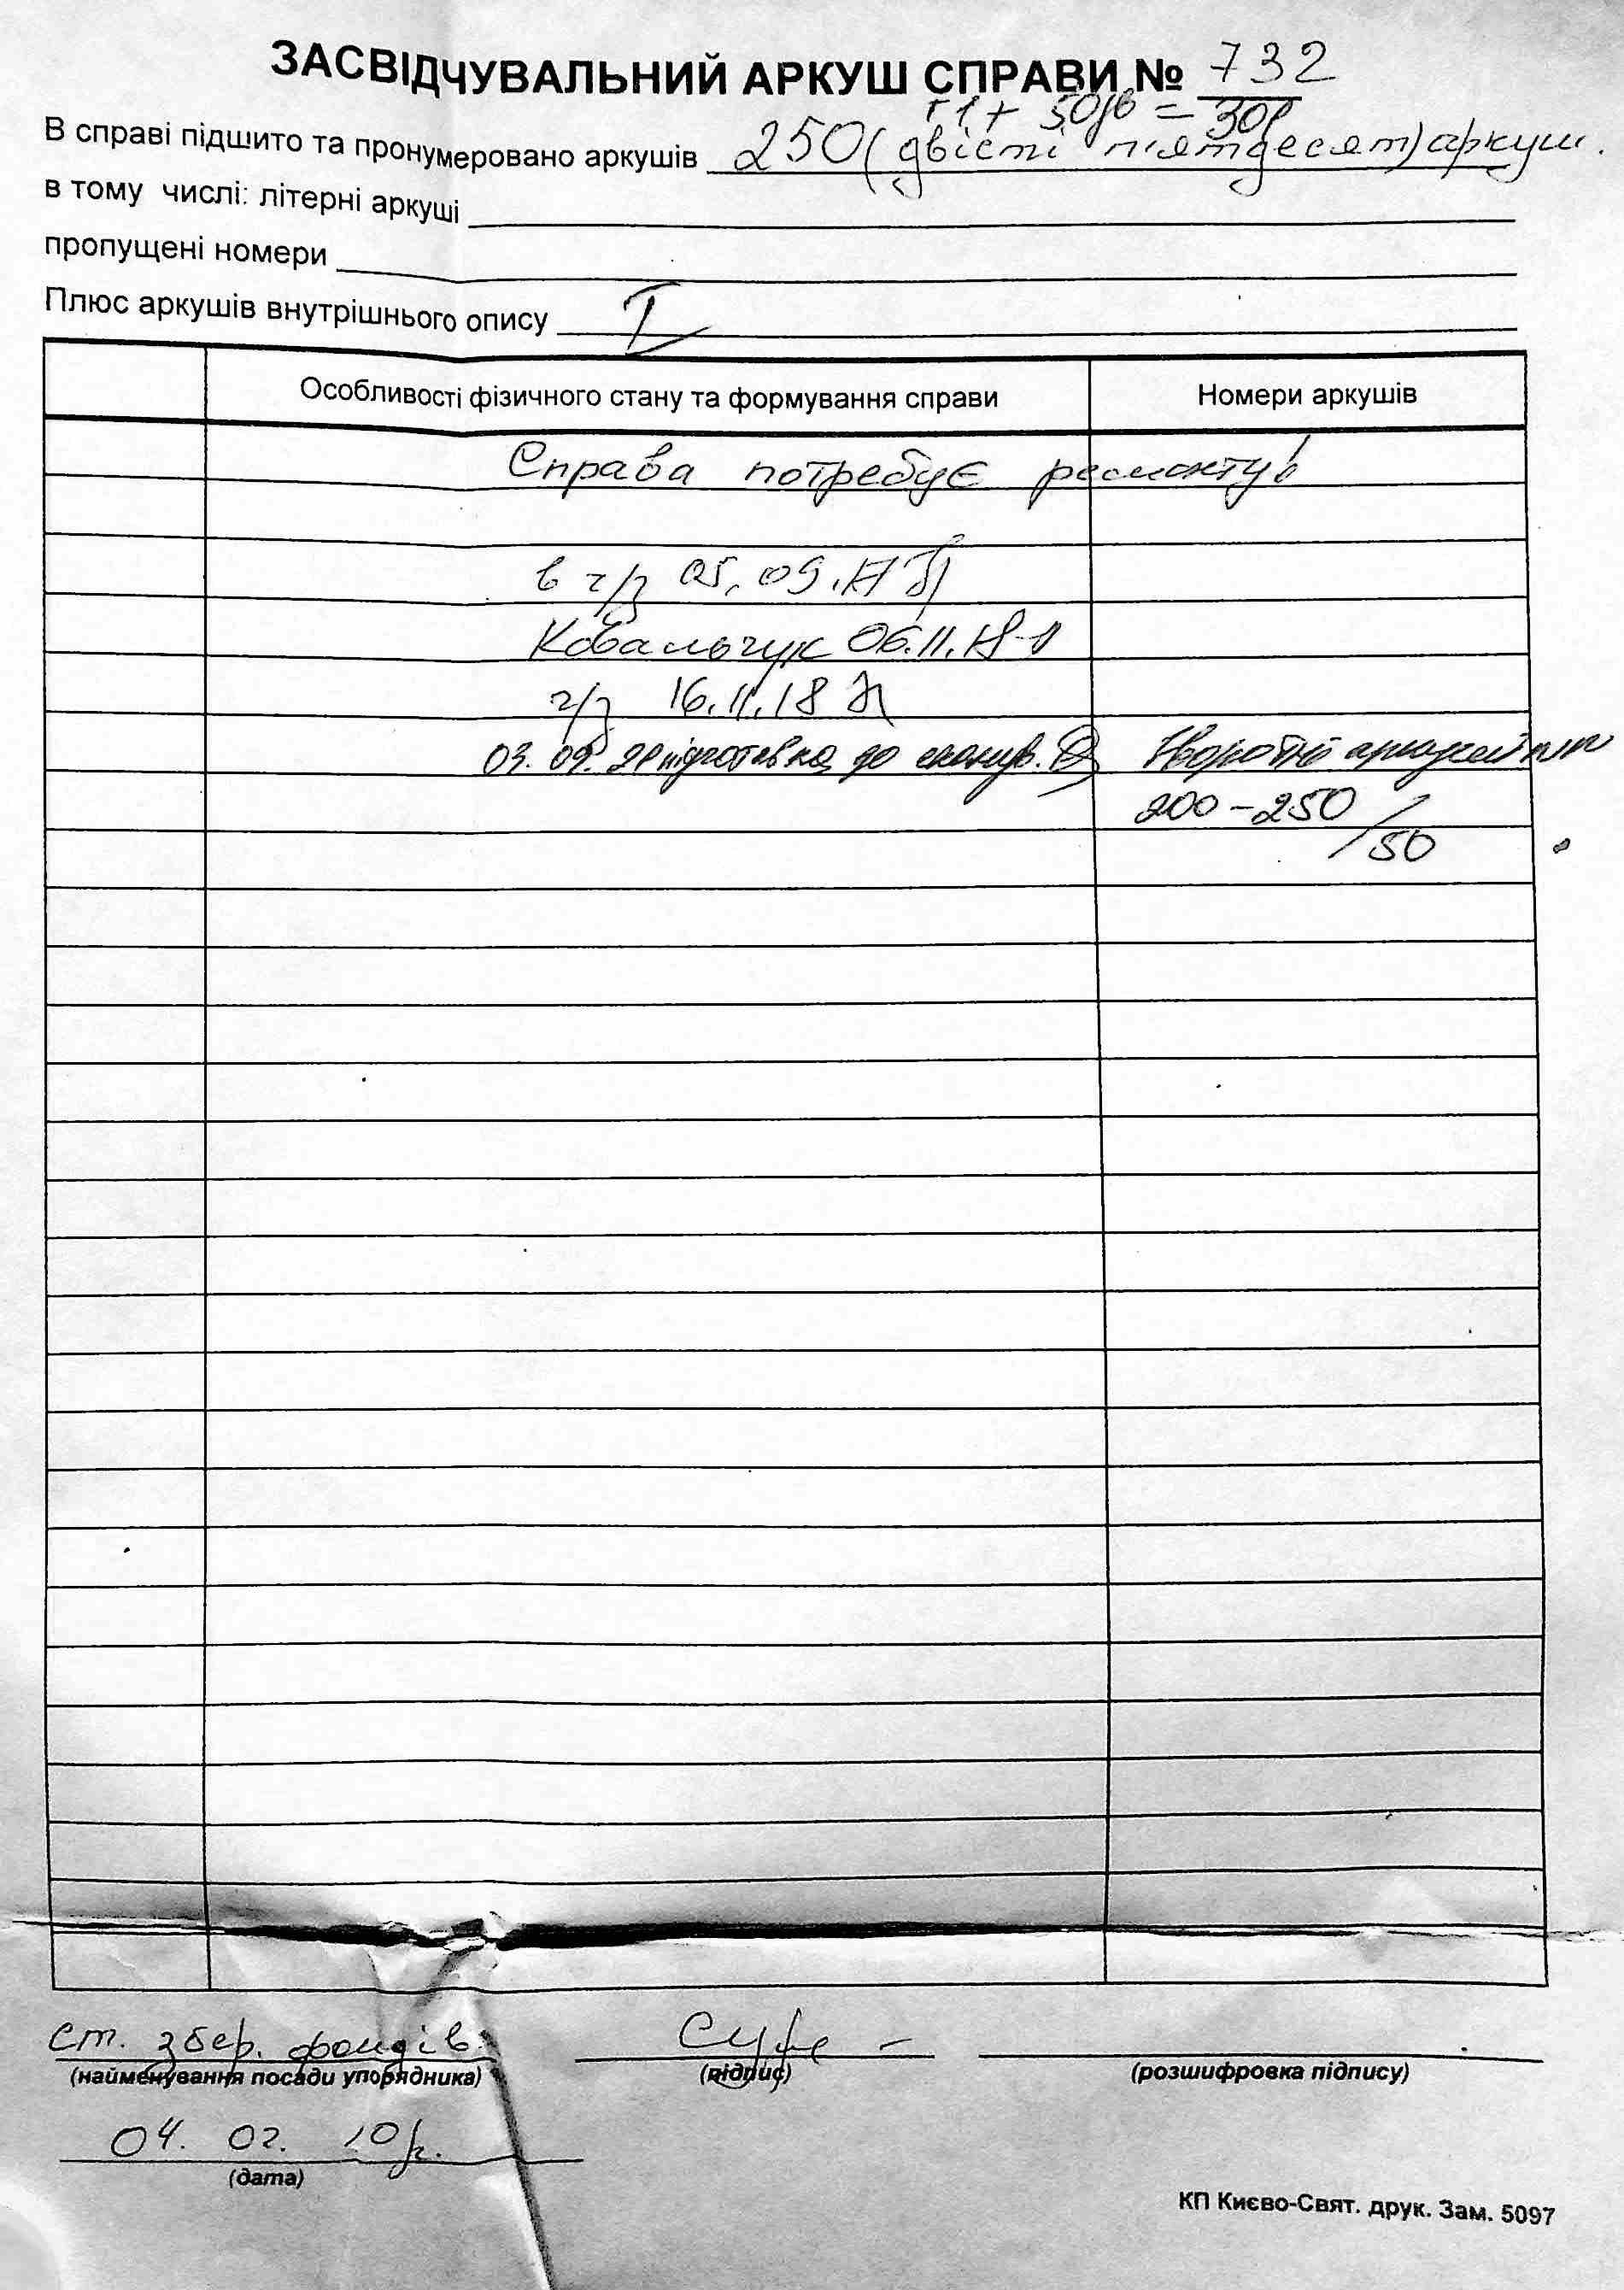 ЗАСВІДЧУВАЛЬНИЙ АРКУШ СПРАВИ № 732
+1+ 50 = 301
В справі підшито та пронумеровано аркушів 250 (двісті п'ятдесят) аркуш.
в тому числі: літерні аркуші
пропущені номери
Плюс аркушів внутрішнього опису I
Особливості фізичного стану та формування справи Номери аркушів
Справа потребує ремонту!
в ч/з 05.09.17
Ковальчук 06.11.18
ч/з 16.11.18
03.09.21 підготовка до сканув. Звороти аркушів
200-250
/50
ст. збер. фондів
(найменування посади упорядника) (підпис) (розшифровка підпису)
04. 02. 10р.
(дата)
КП Києво-Свят. друк. Зам. 5097